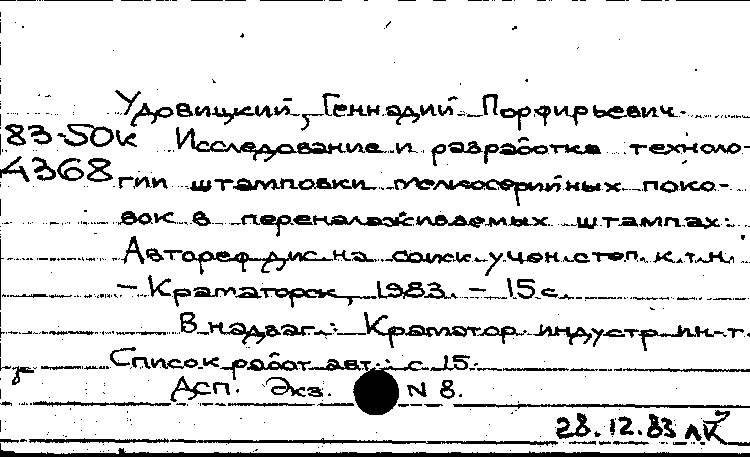 Удовицкий, Геннадий Порфирьевич.
83-50к Исследование и разработка техноло-
4368 гии штамповки мелкосерийных поко-
вок в переналаживаемых штампах:
Автореф дис на соиск. учен. степ. к.т.н.
- Краматорск, 1983. - 15 с.
В надзаг.: Краматор. индустр ин-т.
Список работ авт.: с 15.
Дсп. Экз. N 8.
28.12.83 лк